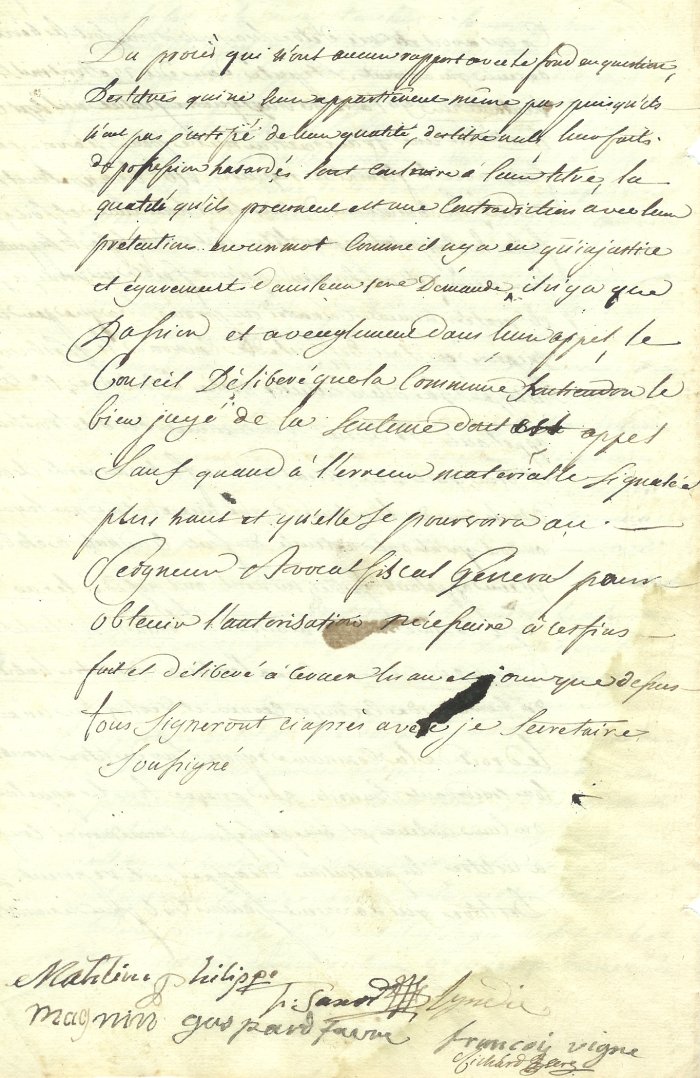 Du procès qui n'ont aucun rapport avec le fond en question,
Des titres qui ne leur appartiennent même pas puisqu'ils
n'ont pas justifié de leur qualité, des titre nuls leur faits
de possession hasardés sont contraire à leur titre, la
qualité qu'ils prennent est une Contradiction avec leur
prétention en un mot Comme il n'y a eu qu'injustice
et égarements dans leur 1ere Demande, il n'y a que
Passion et aveuglement dans leur appel, le
Conseil Délibéré que la Commune soutiendra le
bien jugé de la Sentence dont est appel
Sauf quand à l'erreur matérielle signalée
plus haut et qu'elle se pourvoira au
Seigneur Avocat fiscal Général pour
obtenir l'autorisation nécessaire à ces fins
fait et délibéré à les an et jour que dessus
tous signeront ci après avec je Secretaire
Soussigné
philippe
Syndic
magnin gaspard favre
françois vigne
Richard